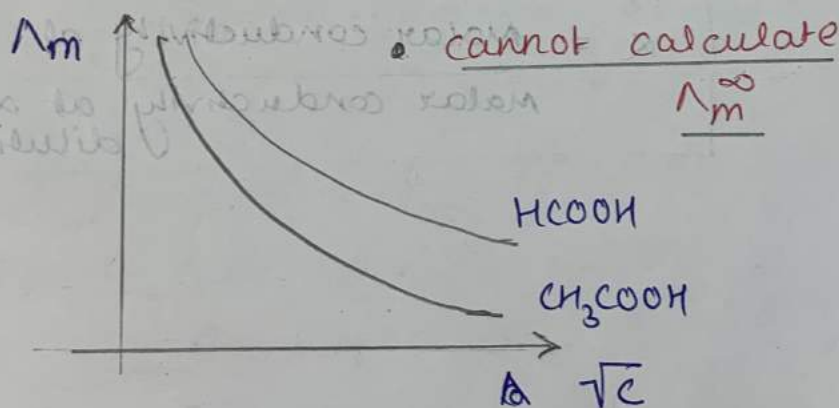 Λm
• cannot calculate
Λm^∞
HCOOH
CH₃COOH
√c